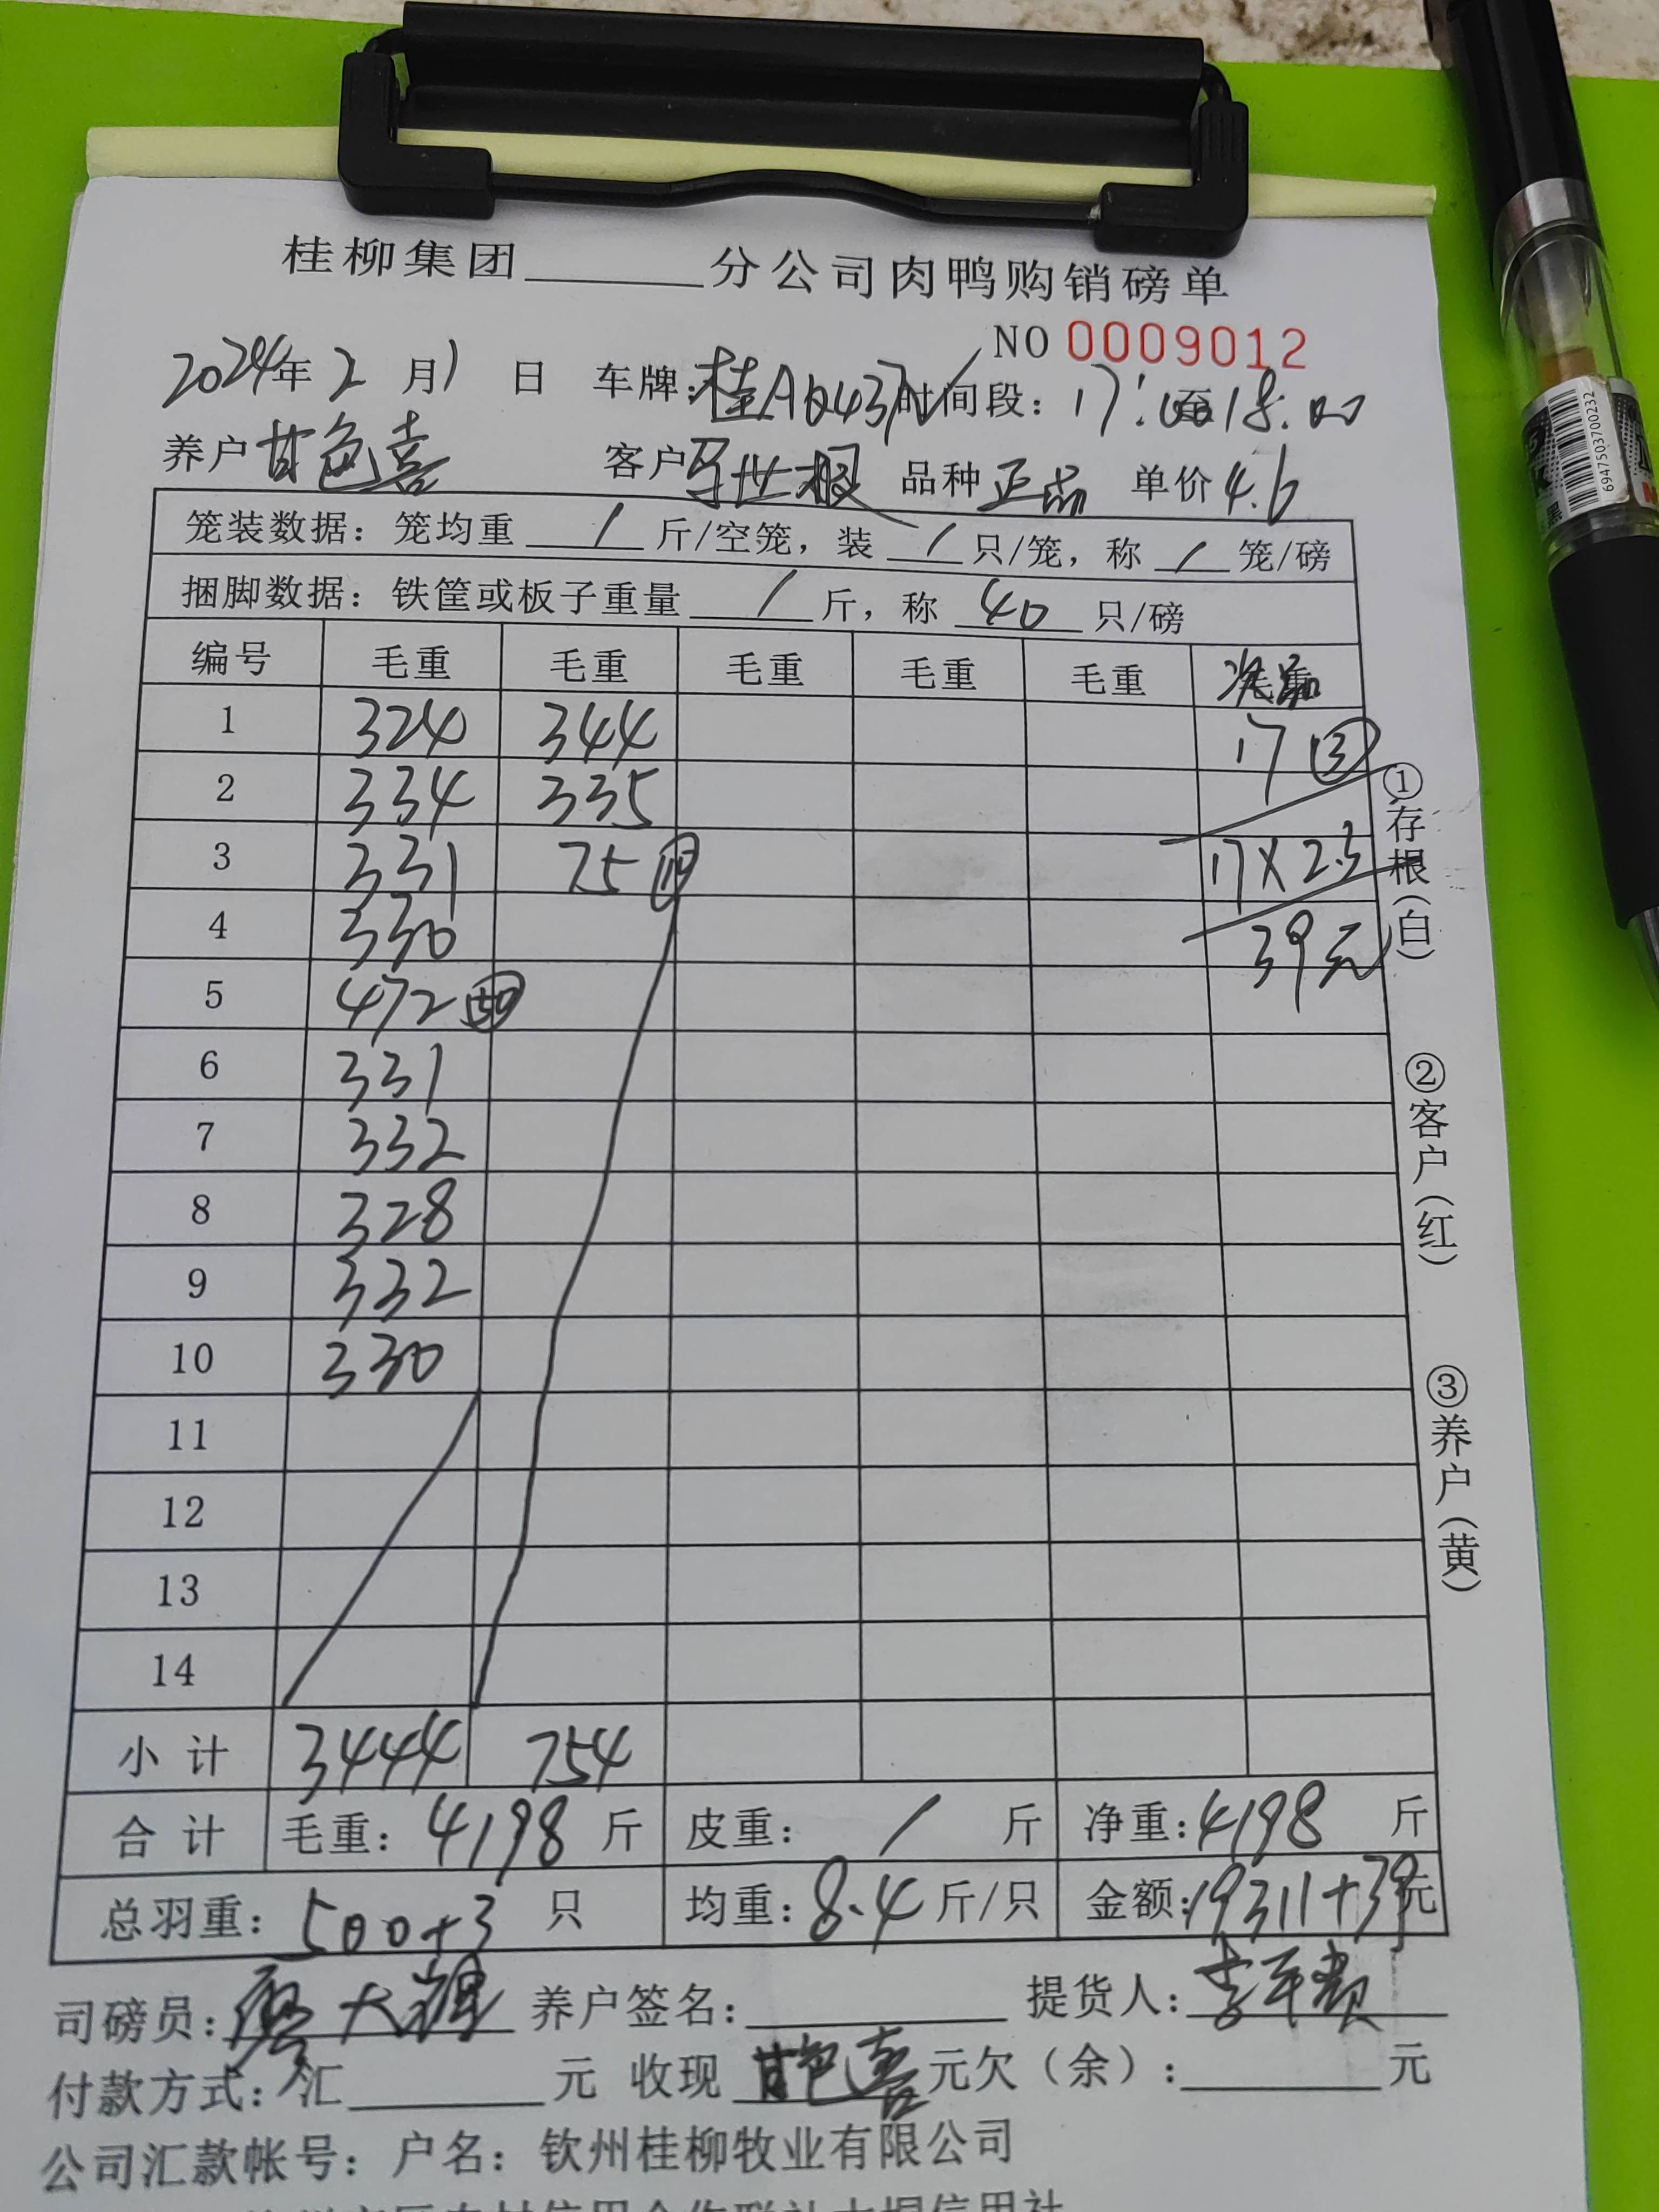 桂柳集团______分公司肉鸭购销磅单
NO 0009012
2024年2月1日 车牌:桂A 时间段:17:00至18:00
养户 甘色喜 客户 世根 品种 正品 单价 4.6
笼装数据:笼均重 / 斤/空笼,装 / 只/笼,称 / 笼/磅
捆脚数据:铁筐或板子重量 / 斤,称 40 只/磅
编号 毛重 毛重 毛重 毛重 毛重 次品
1 324 344 17 ③
2 334 335
3 331 75 17×2.3
4 330 39元
5 472 50
6 331
7 332
8 328
9 332
10 330
11
12
13
14
小计 3444 754
合计 毛重:4198斤 皮重: / 斤 净重:4198斤
总羽重:500+3只 均重:8.4斤/只 金额:19311+39元
司磅员:廖大 养户签名: 提货人:李
付款方式:汇______元 收现 甘色喜 元欠(余):______元
公司汇款帐号:户名:钦州桂柳牧业有限公司
①存根(白)
②客户(红)
③养户(黄)
6947503700232
黑